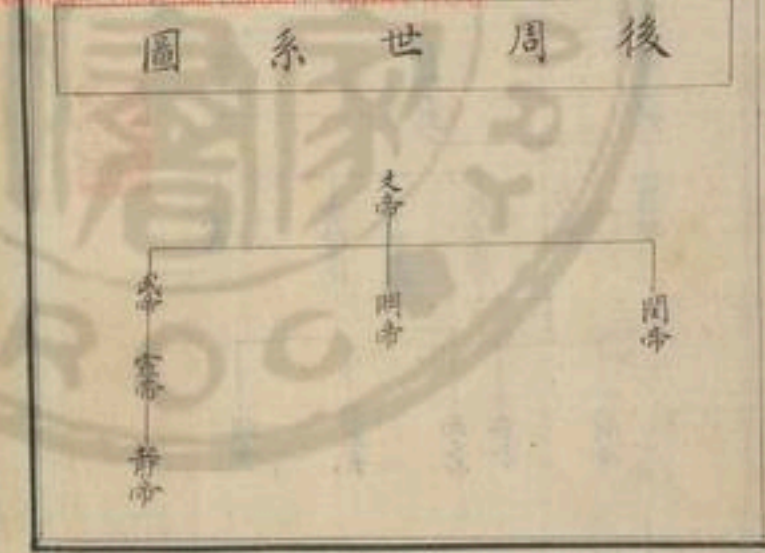 後周世系圖
文帝
閔帝
明帝
武帝
宣帝
靜帝